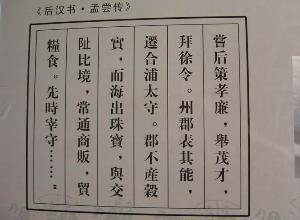 《后汉书·孟尝传》
嘗后策孝廉，舉茂才，
拜徐令。州郡表其能，
遷合浦太守。郡不産穀
實，而海出珠寶，與交
阯比境，常通商販，貿
糧食。先時宰守……